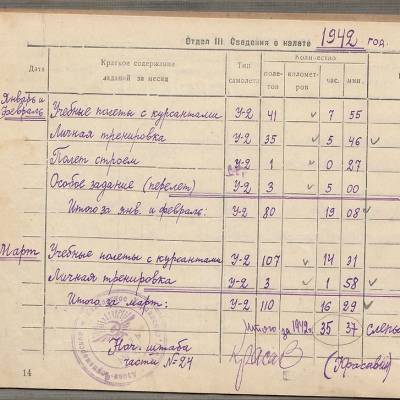 Отдел III. Сведения о налете 1942 год.
Дата Краткое содержание заданий за месяц Тип самолета Количество
полетов километров час. мин.
Январь и февраль Учебные полеты с курсантами У-2 41 7 55
Личная тренировка У-2 35 5 46
Полет строем У-2 1 0 27
Особое задание (перелет) У-2 3 5 00
Итого за янв. и февраль: У-2 80 19 08
Март Учебные полеты с курсантами У-2 107 14 31
Личная тренировка У-2 3 1 58
Итого за март: У-2 110 16 29
Итого за 1942г. 35 37
Нач. штаба
части №24
(Красавин)
14